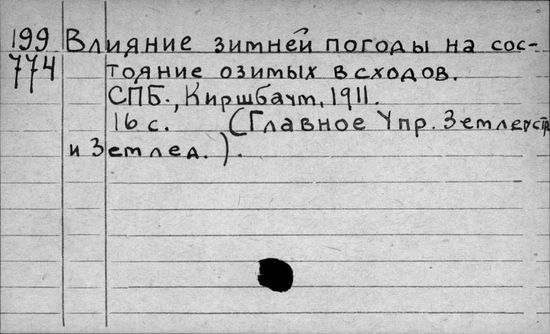 199 Влияние зимней погоды на сос-
774 тояние озимых всходов.
СПБ., Киршбаум, 1911.
16 с. (Главное Упр. Землеустр
и Землед.).